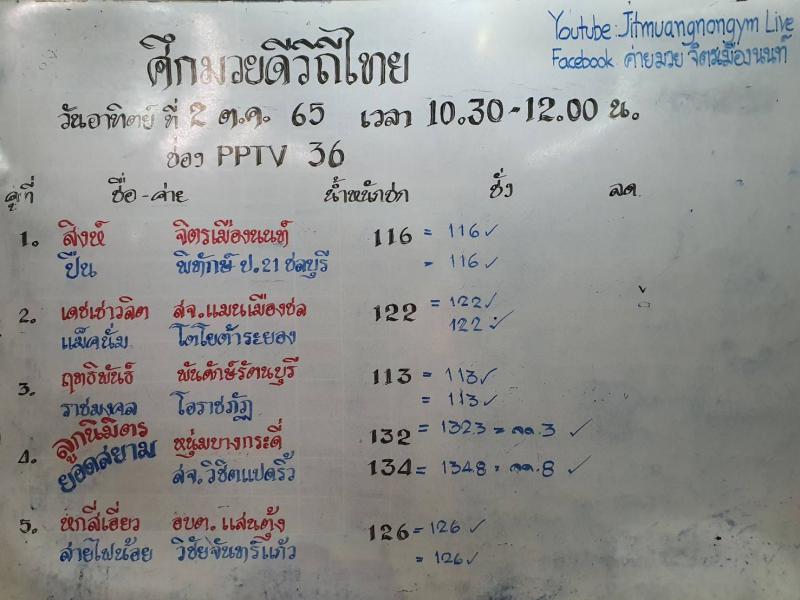 Youtube: Jitmuangnongym Live
Facebook ค่ายมวย จิตรเมืองนนท์
ศึกมวยดีวิถีไทย
วันอาทิตย์ ที่ 2 ต.ค. 65 เวลา 10.30-12.00 น.
ช่อง PPTV 36
คู่ที่ ชื่อ-ค่าย น้ำหนักชก ชั่ง ลด
1. สิงห์ จิตรเมืองนนท์ 116 = 116 ✓
ปืน พิทักษ์ ป.21 ชลบุรี = 116 ✓
2. เดชเชาวลิต สจ.แมนเมืองชล 122 = 122 ✓
แม็คนั่ม โตโยต้าระยอง 122 ✓
3. ฤทธิพันธ์ พันศักษ์รัตนบุรี 113 = 113 ✓
ราชมงคล โอราชภัฏ = 113 ✓
4. ลูกนิมิตร หนุ่มบางกระดี่ 132 = 132.3 = ลด.3 ✓
ยอดสยาม สจ.วิชิตแปดริ้ว 134 = 134.8 = ลด.8 ✓
5. หกสี่เฮี่ยว อบต.แสนตุ้ง 126 = 126 ✓
สายไฟน้อย วิชัยจันทร์แก้ว = 126 ✓